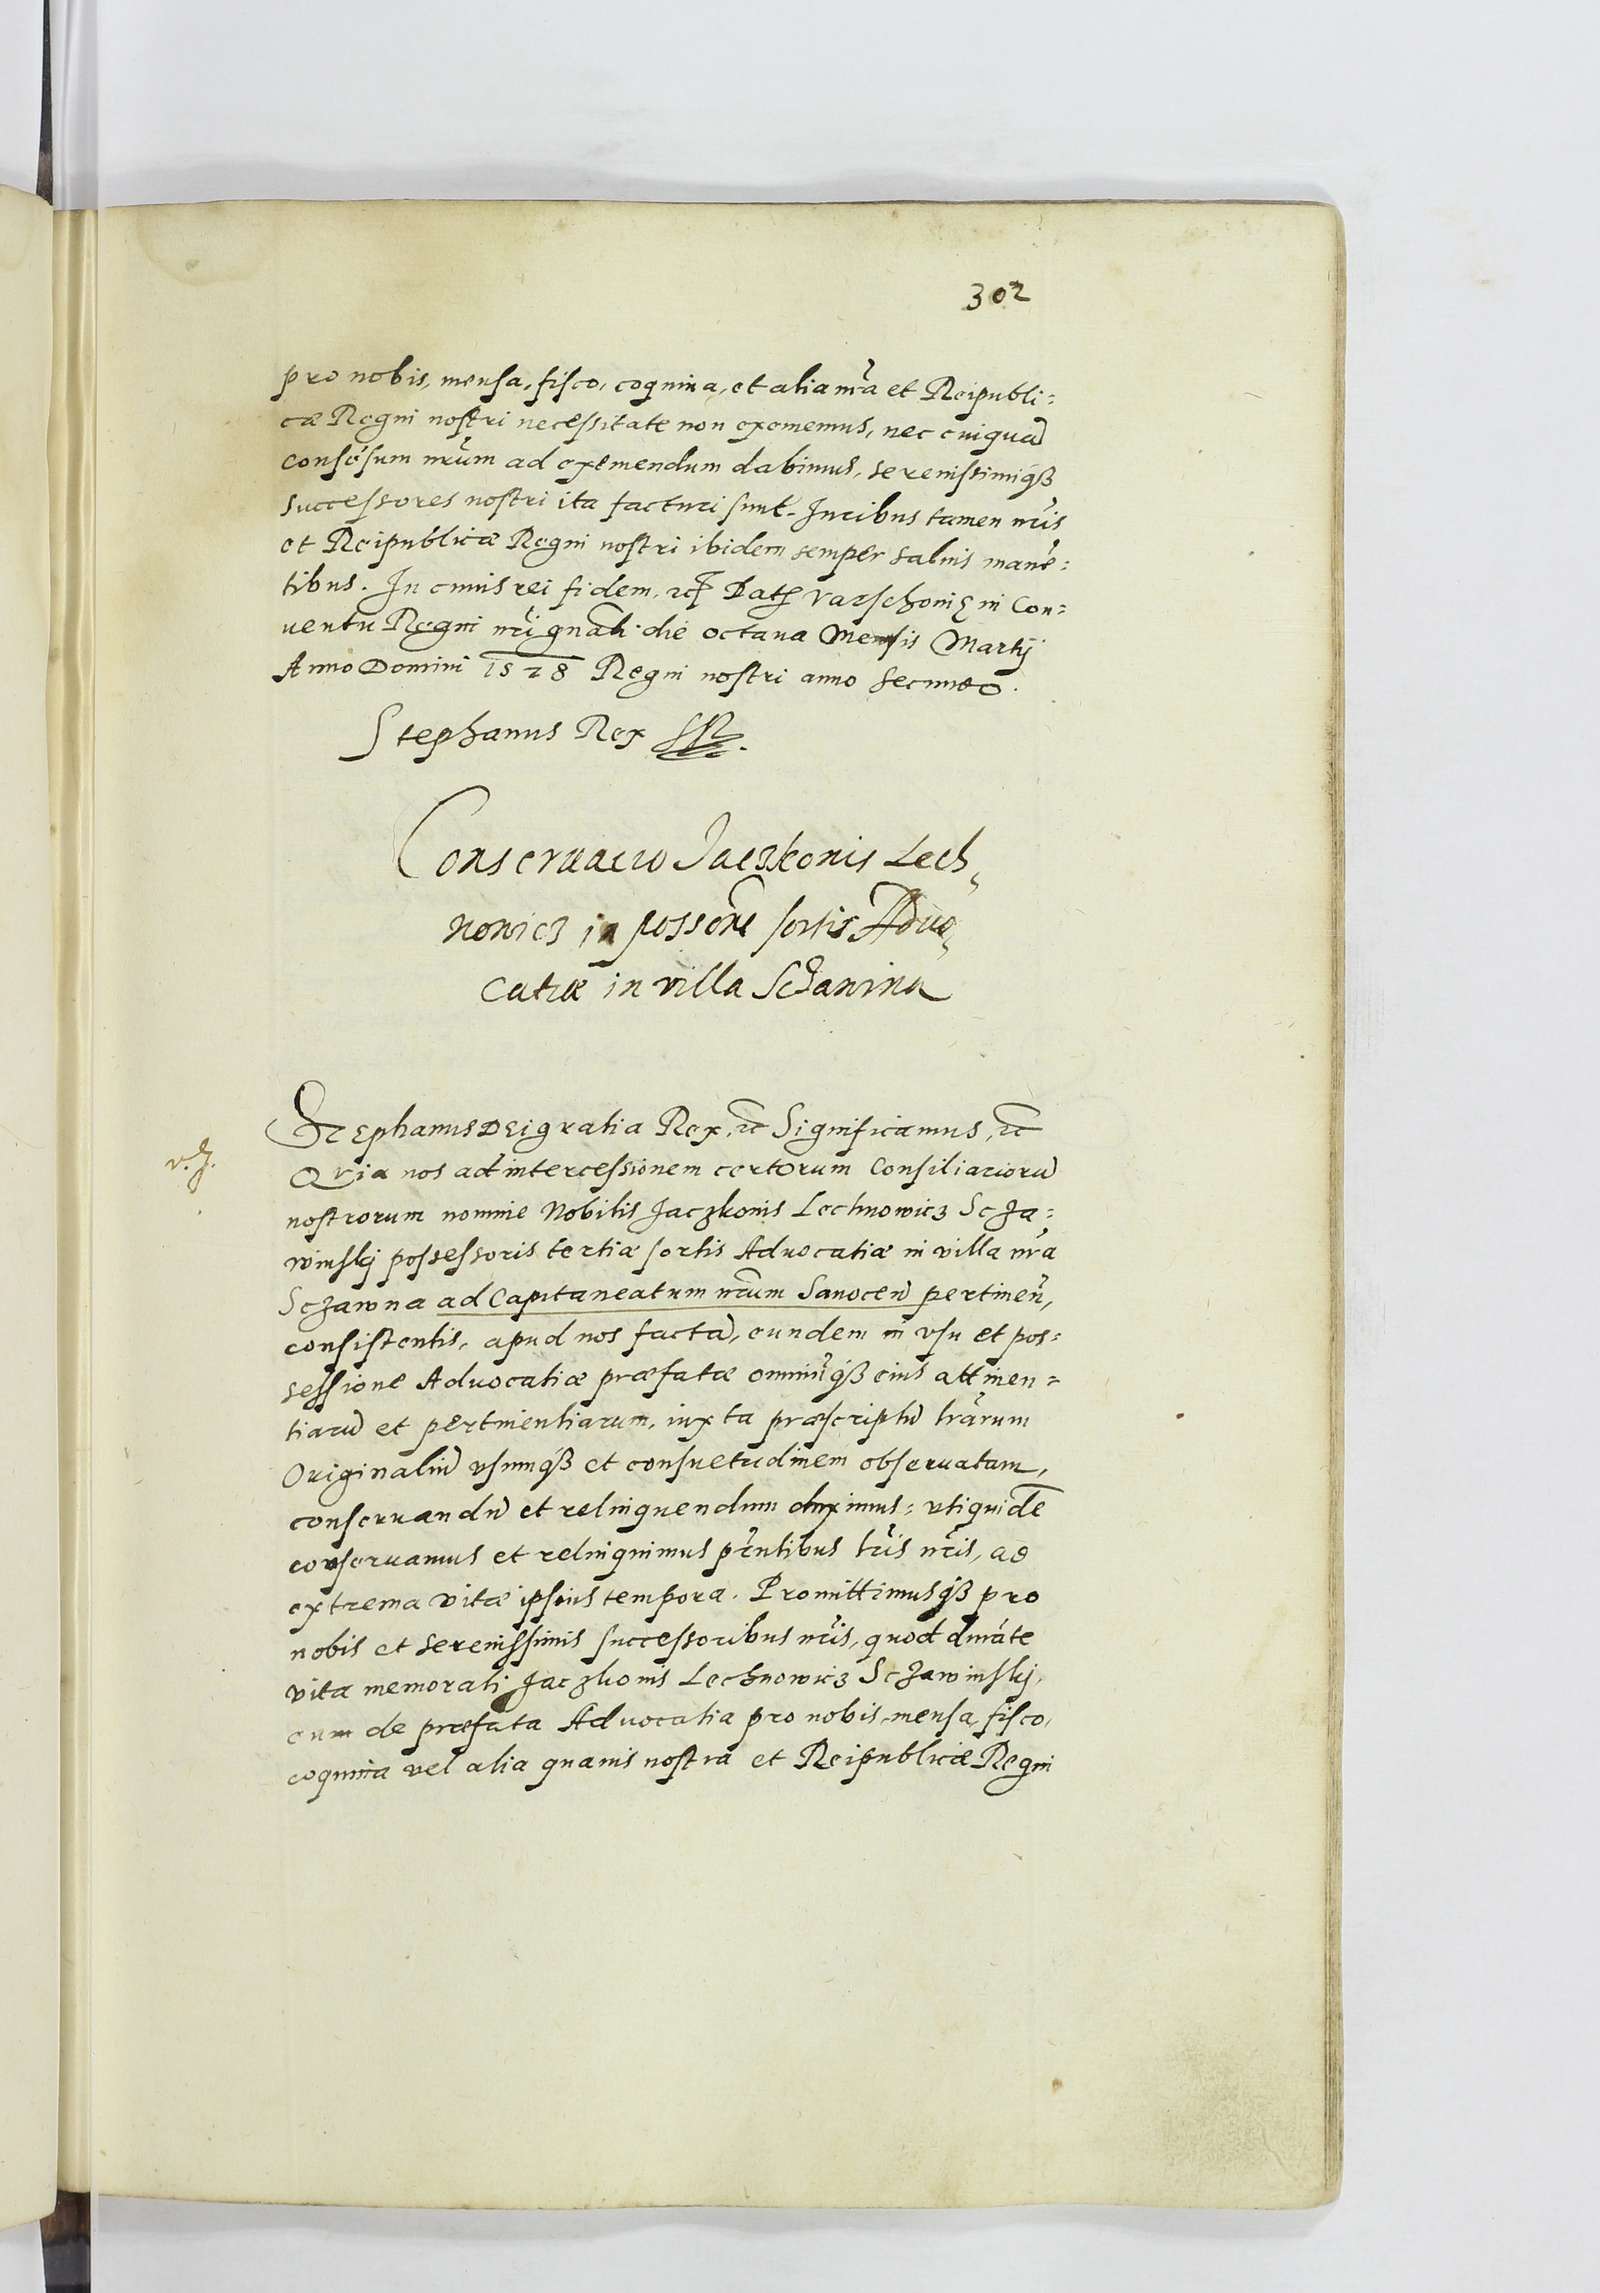 302
pro nobis, mensa, fisco, coquina, et alia nr̃a et Reipubli=
cæ Regni nostri necessitate non exememus, nec cuiquã
consẽsum nr̃um ad exemendum dabimus, serenissimiq́ꝫ
successores nostri ita facturi sunt. Iuribus tamen nr̃is
et Reipublicæ Regni nostri ibidem semper saluis manẽ=
tibus. In cuius rei fidem, etc. Dat. Varschouię in Con=
uentu Regni nr̃i gnãli die octaua Mensis Martij
Anno Domini 1578 Regni nostri anno secundo.
Stephanus Rex
Conseruacio Jaczkonis Lech,
nowicz in possone͂ sortis Aduo,
catiæ in villa Sczawina
Stephanus Dei gratia Rex, etc Significamus, etc
v. J.
Quia nos ad intercessionem certorum Consiliariorũ
nostrorum nomine Nobilis Jaczkonis Lechnowicz Scza=
winskj possessoris tertiæ sortis Aduocatiæ in villa nr̃a
Sczawna ad Capitaneatum nr̃um Sanoceñ pertineñ,
consistentis, apud nos factã, eundem in vsu et pos=
sessione Aduocatiæ præfatæ omniũq́ꝫ eius attinen=
tiarũ et pertinentiarum, iuxta præscriptũ lr̃arum
Originaliũ vsumq́ꝫ et consuetudinem obseruatam,
conseruandũ et relinquendum duximus: vti quidẽ
conseruamus et relinquimus pr̃ntibus lr̃is nr̃is, ad
extrema vitæ ipsius tempora. Promittimusq́ꝫ pro
nobis et serenissimis successoribus nr̃is, quod durãte
vita memorati Jaczkonis Lechnowicz Sczawinskj,
eum de præfata Aduocatia pro nobis, mensa, fisco,
coquina vel alia quauis nostra et Reipublicæ Regni